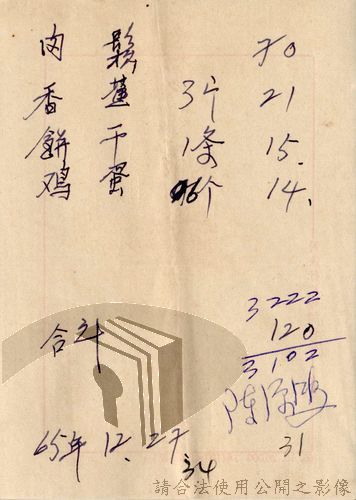 肉鬆 70
香蕉 3斤 21
餅干 1条 15.
鸡蛋 6个 14.
3222
合计 120
3102
65年 12. 27
34
31
請合法使用公開之影像